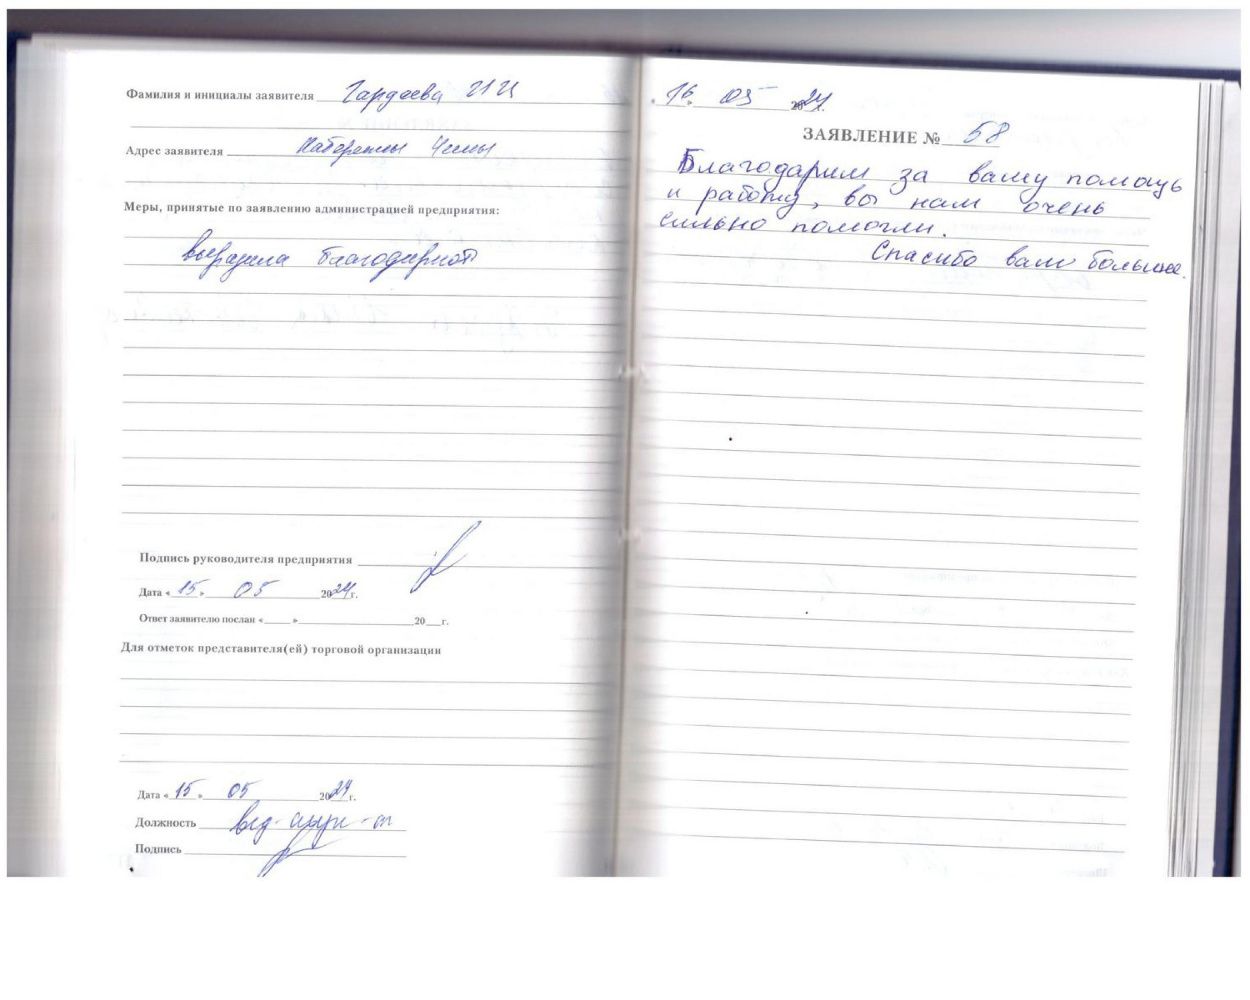 Фамилия и инициалы заявителя Гардеева И И
Адрес заявителя Набережны Челны
Меры, принятые по заявлению администрацией предприятия:
выразила благодарност
Подпись руководителя предприятия
Дата « 15 » 05 2024 г.
Ответ заявителю послан « » 20 г.
Для отметок представителя(ей) торговой организации
Дата « 15 » 05 2024 г.
Должность
Подпись
16 05 2024 г.
ЗАЯВЛЕНИЕ № 58
Благодарим за вашу помощь
и работу, вы нам очень
сильно помогли.
Спасибо вам большое.